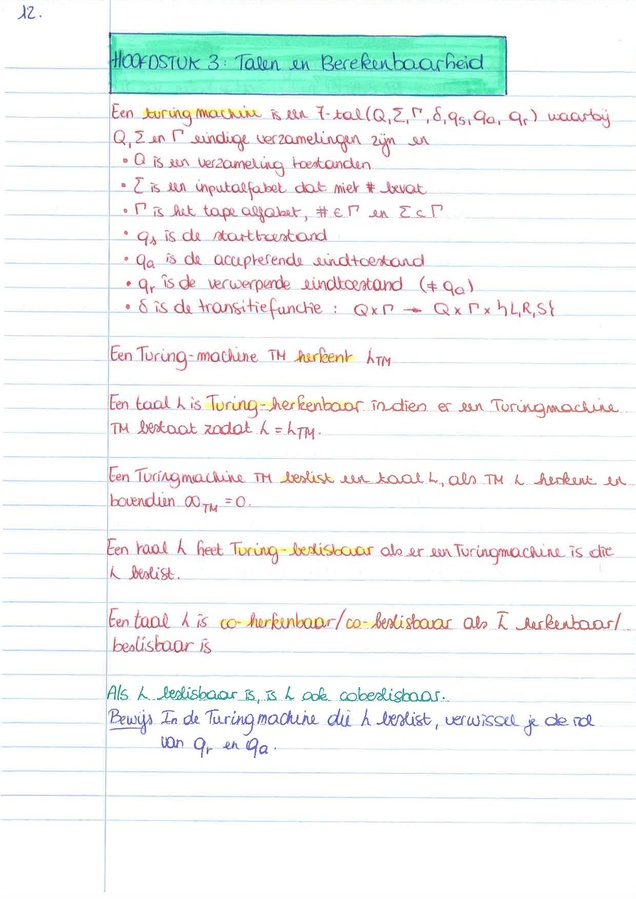 12.
HOOFDSTUK 3: Talen en Berekenbaarheid
Een turingmachine is een 7-tal (Q, Σ, Γ, δ, qs, qa, qr) waarbij
Q, Σ en Γ eindige verzamelingen zijn en
• Q is een verzameling toestanden
• Σ is een inputalfabet dat niet # bevat
• Γ is het tape alfabet, # ∈ Γ en Σ ⊂ Γ
• qs is de starttoestand
• qa is de accepterende eindtoestand
• qr is de verwerpende eindtoestand (≠ qa)
• δ is de transitiefunctie : Q × Γ → Q × Γ × {L,R,S}
Een Turing-machine TM herkent L_TM
Een taal L is Turing-herkenbaar indien er een Turingmachine
TM bestaat zodat L = L_TM.
Een Turingmachine TM beslist een taal L, als TM L herkent en
bovendien ∞_TM = 0.
Een taal L heet Turing-beslisbaar als er een Turingmachine is die
L beslist.
Een taal L is co-herkenbaar/co-beslisbaar als L̅ herkenbaar/
beslisbaar is
Als L beslisbaar is, is L ook cobeslisbaar.
Bewijs In de Turingmachine die L beslist, verwissel je de rol
van qr en qa.